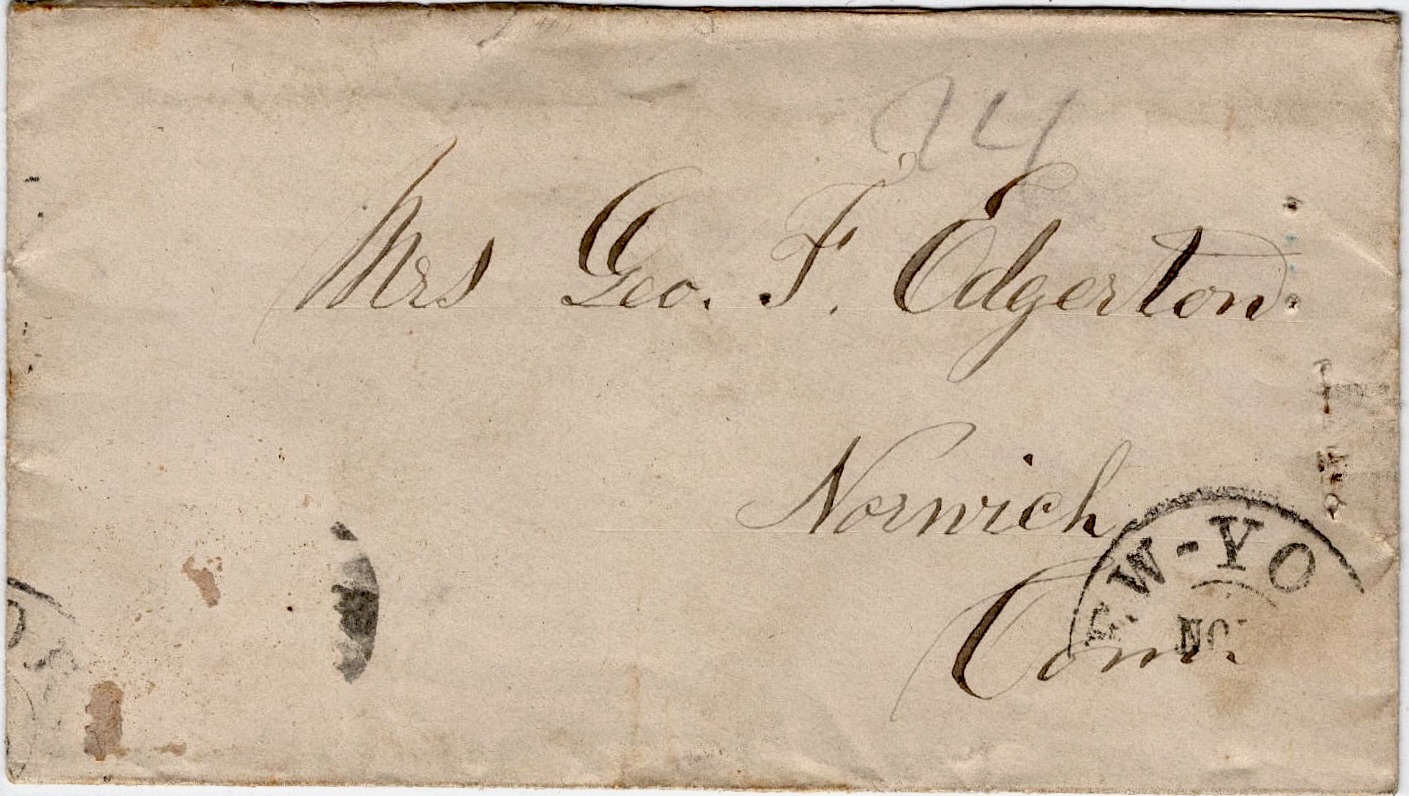 24
Mrs Geo. F. Edgerton.
Norwich
Conn.
EW-YO
NOV